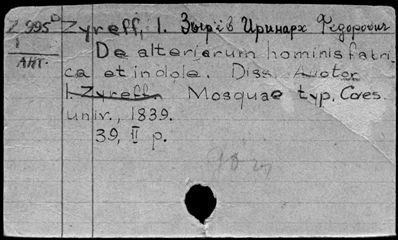 Z 995 Zyreff, I. Зырѣв Иринарх Федорович
1
Лит. De alteriarum hominis fabri-
ca et indole. Diss. Auctor
I. Zyreff. Mosquae typ. Caes.
univ., 1839.
39, II p.